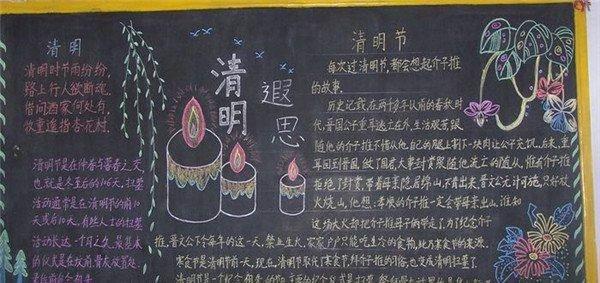 清明
清明时节雨纷纷,
路上行人欲断魂,
借问酒家何处有,
牧童遥指杏花村.
清明节是在仲春与暮春之交,
也就是冬至后的106天,扫墓
活动通常是在清明节的前10
天或后10天,有些人士的扫墓
活动长达一个月之久,最基本
的仪式是在坟前,骨灰放置处
清明
遐思
清明节
每次过清明节,都会想起介子推
的故事.
历史记载,在两千多年以前的春秋时
代,晋国公子重耳逃亡在外,生活艰苦跟
随他的介子推不惜从他自己的腿上割下一块肉让公子充饥,后来,重
耳回到晋国,做了国君大事封赏跟随他流亡的随从,惟有介子推
拒绝了封赏,带着母亲隐居绵山,不肯出来,晋文公无计可施,只好放
火烧山,他想,孝顺的介子推一定会带母亲出山,谁知
这场大火却把介子推母子俩带走了,为了纪念介子
推,晋文公下令每年的这一天,禁止生火,家家户户只能吃生冷的食物,此乃寒食节的来源.
寒食节是清明节前一天,现在,清明节取代了寒食节,拜介子推的习俗,也变成清明扫墓了.